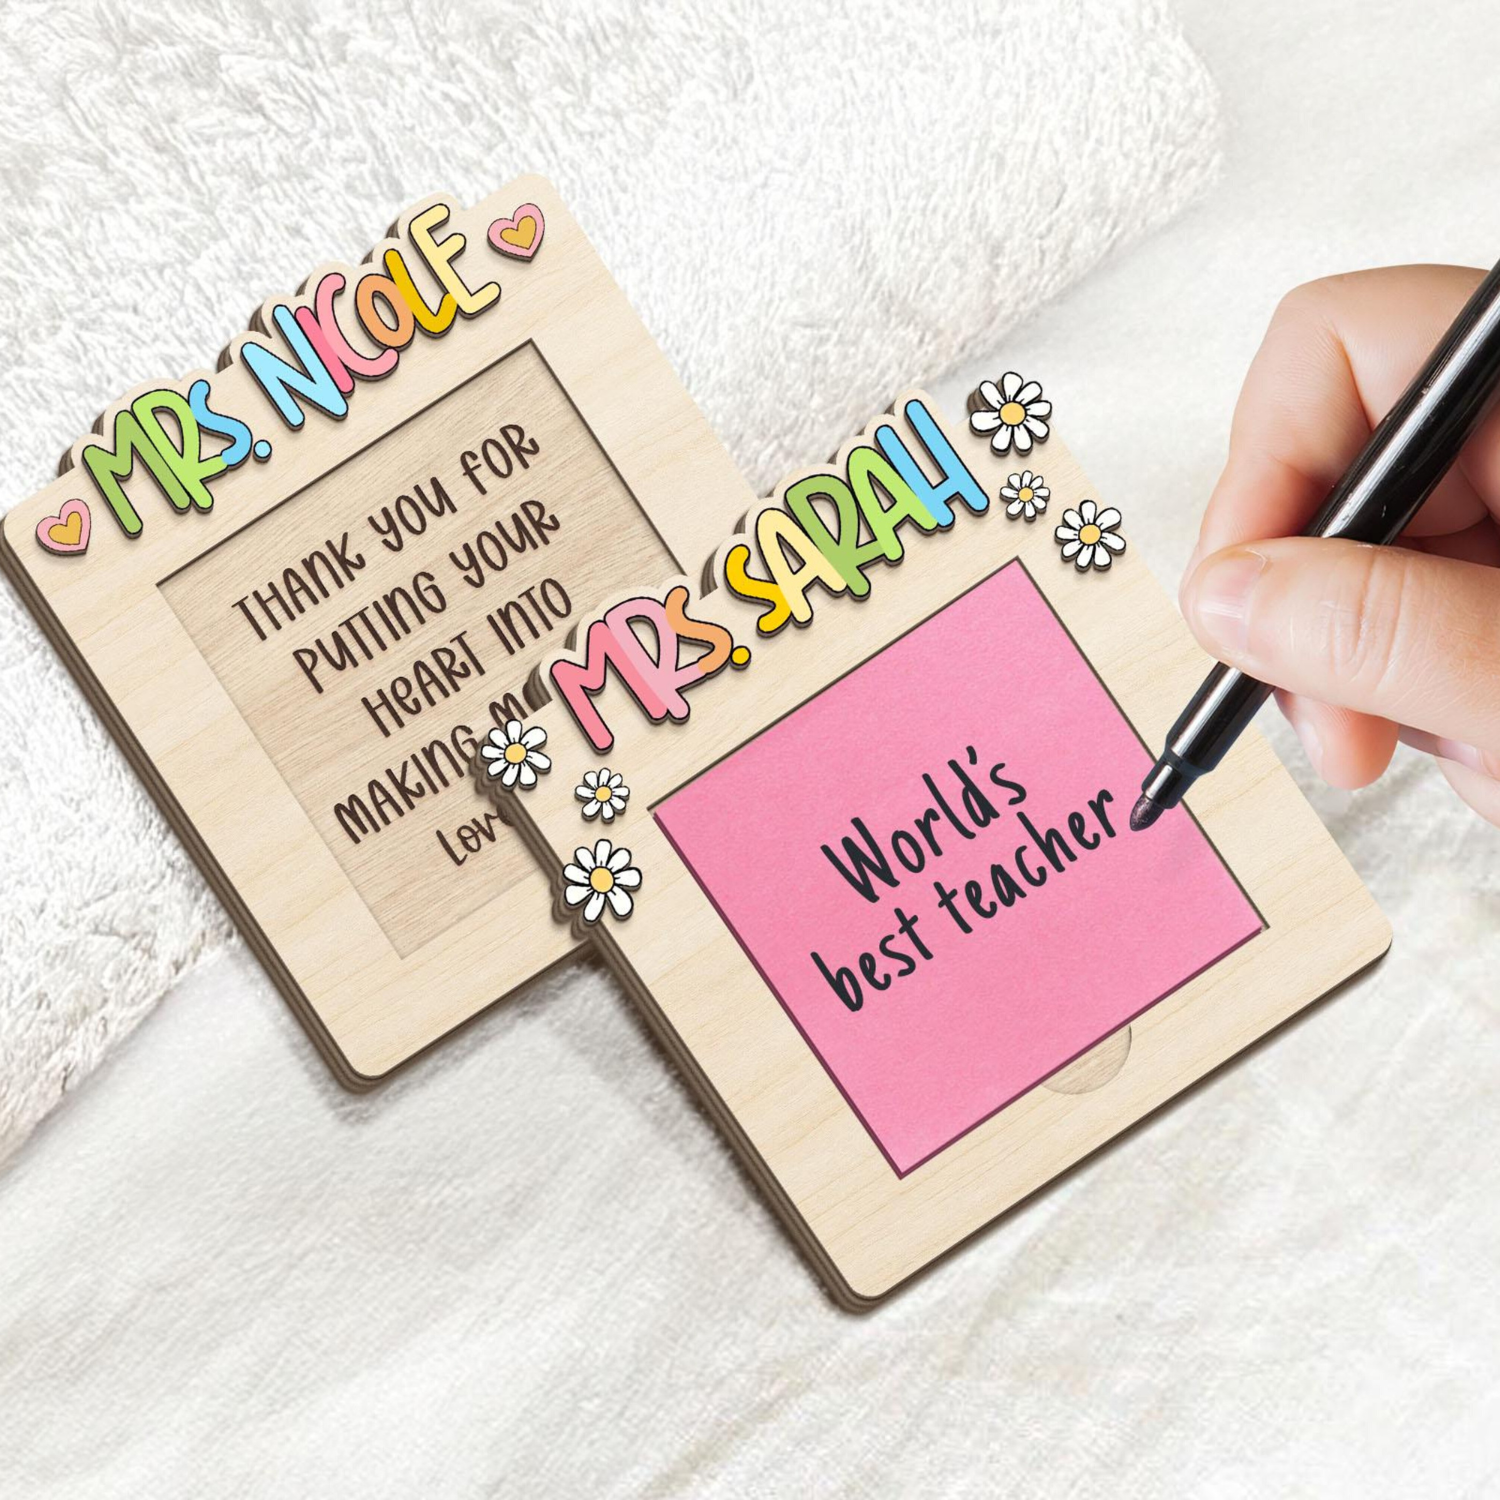 MRS. NICOLE
THANK YOU FOR
PUTTING YOUR
HEART INTO
MAKING
MRS. SARAH
World's
best teacher